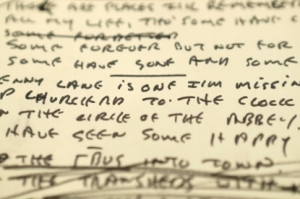 THERE ARE PLACES I'LL REMEMBER
ALL MY LIFE, THO' SOME HAVE C
SOME FOREVER BUT NOT FOR
SOME HAVE GONE AND SOME
ENNY LANE IS ONE I'M MISSIN
P CHURCH AND TO THE CLOCK
N THE CIRCLE OF THE ABBEY
HAVE SEEN SOME HAPPY
THE BUS INTO TOWN